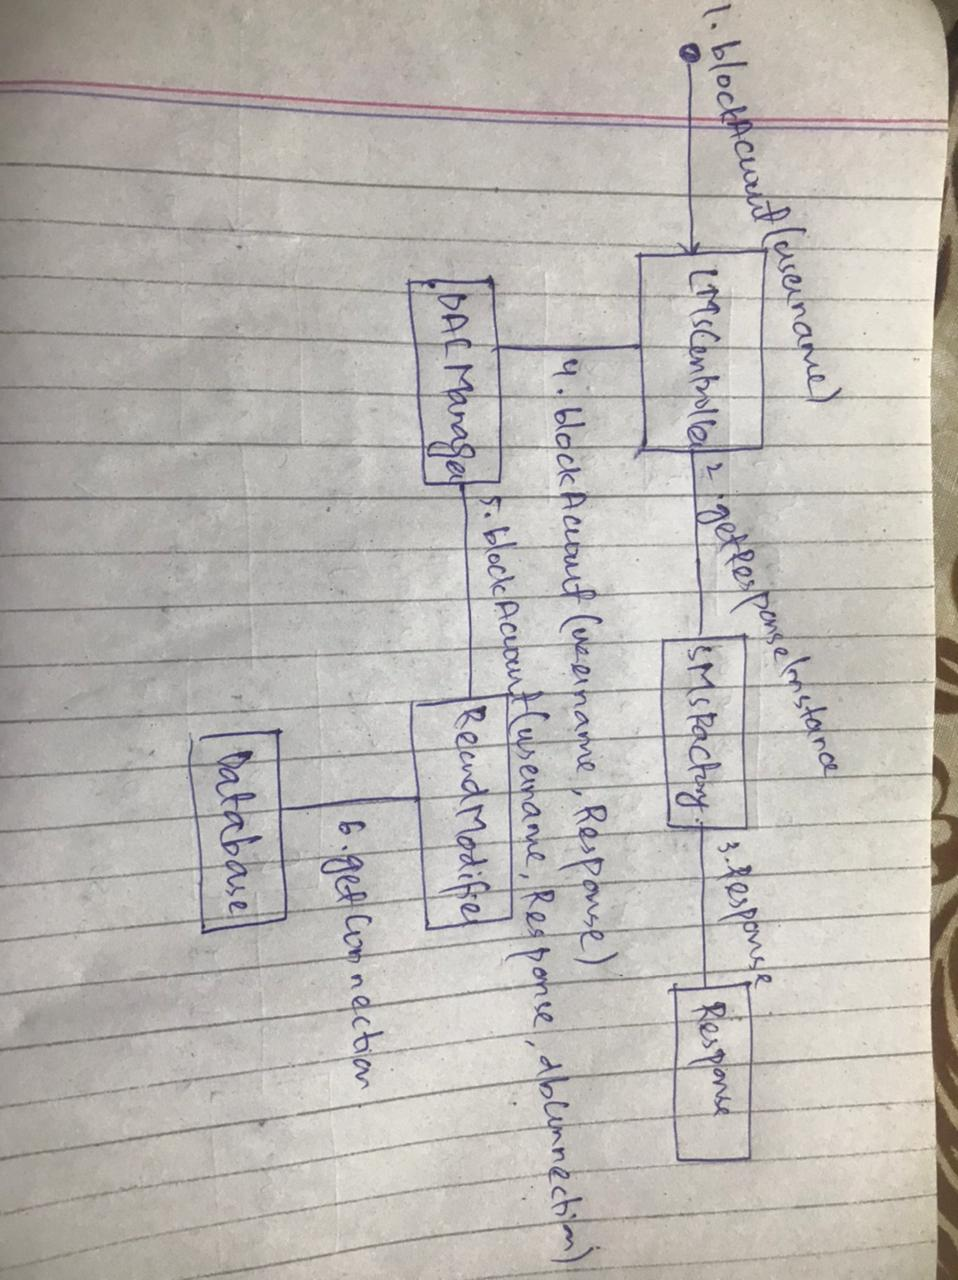 1. blockAccount(username)
LMSController
2. getResponseInstance
SMSFactory
3. Response
Response
4. blockAccount (username, Response)
DALManager
5. blockAccount(username, Response, dbConnection)
RecordModifier
6. getConnection
Database